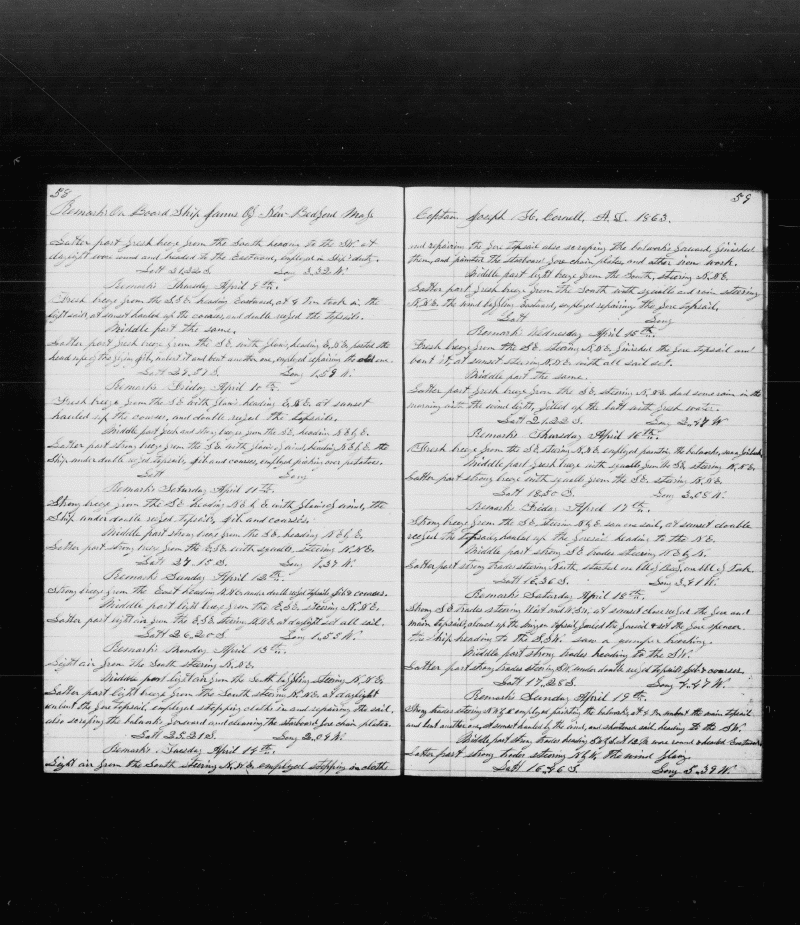 58
Remarks On Board Ship James Of New Bedford Mass
Latter part fresh breeze from the South heading to the SW. at
daylight wore round and headed to the Eastward, employed in Ship duty.
Latt 31.26 S. Long 3.32 W.
Remarks Thursday April 9th.
Fresh breeze from the S.E. heading Eastward, at 4 P.m. took in the
light sails, at sunset hauled up the courses, and double reefed the topsails.
Middle part the same.
Latter part fresh breeze from the S.E. with flaws, heading E.N.E. parted the
head rope of the flying Jib, unbent it and bent another one, employed repairing the old one.
Latt 29.51 S. Long 1.59 W.
Remarks Friday April 10th.
Fresh breeze from the S.E. with flaws heading E.N.E. at sunset
hauled up the courses, and double reefed the topsails.
Middle part fresh and strong breeze from the S.E. heading N.E. by E.
Latter part strong breeze from the S.E. with flaws of wind, heading N.E. by E. the
Ship under double reefed topsails, Jib and courses, employed picking over potatoes.
Latt Long
Remarks Saturday April 11th.
Strong breeze from the S.E. heading N.E. by E. with flaws of wind, the
Ship under double reefed topsails, Jib and courses.
Middle part strong breeze from the S.E. heading N.E. by E.
Latter part strong breeze from the E.S.E. with squalls, steering N.N.E.
Latt 27.15 S. Long 1.37 W.
Remarks Sunday April 12th.
Strong breeze from the East heading N.N.E. under double reefed topsails Jib & courses.
Middle part light breeze from the E.S.E. steering N.N.E.
Latter part light air from the E.S.E. steering N.N.E. at daylight set all sail.
Latt 26.20 S. Long 1.55 W.
Remarks Monday April 13th.
Light air from the South steering N.N.E.
Middle part light air from the South baffling steering N.N.E.
Latter part light breeze from the South steering N.N.E. at daylight
unbent the fore topsail, employed stopping cloths in and repairing the sail,
also scraping the bulwarks forward and cleaning the starboard fore chain plates.
Latt 25.21 S. Long 2.09 W.
Remarks Tuesday April 14th.
Light air from the South steering N.N.E. employed stopping in cloths
59
Captain Joseph H. Cornell, A.D. 1863.
and repairing the fore topsail also scraping the bulwarks forward, finished
them, and painted the starboard fore chain plates, and other iron work.
Middle part light breeze from the South, steering N.N.E.
Latter part fresh breeze from the South with squalls and rain steering
N.N.E. the wind baffling Eastward, employed repairing the fore topsail.
Latt Long
Remarks Wednesday April 15th.
Fresh breeze from the S.E. steering N.N.E. finished the fore topsail and
bent it, at sunset steering N.N.E. with all sail set.
Middle part the same.
Latter part fresh breeze from the S.E. steering N.N.E. had some rain in the
morning with the wind light, filled up the butt with fresh water.
Latt 21.22 S. Long 2.47 W.
Remarks Thursday April 16th.
Fresh breeze from the S.E. steering N.N.E. employed painting the bulwarks, saw a finback.
Middle part fresh breeze with squalls from the S.E. steering N.N.E.
Latter part strong breeze with squalls from the S.E. steering N.N.E.
Latt 18.50 S. Long 3.08 W.
Remarks Friday April 17th.
Strong breeze from the S.E. steering N.N.E. saw one sail, at sunset double
reefed the topsails, hauled up the foresail heading to the N.E.
Middle part strong S.E. trades steering N.E. by N.
Latter part strong trades steering North, started one bbl. of Beef, one bbl. of Pork.
Latt 16.36 S. Long 3.41 W.
Remarks Saturday April 18th.
Strong S.E. trades steering West and W.S.W. at sunset close reefed the fore and
main topsails, clewed up the mizen topsail, furled the foresail & set the fore spencer
the Ship heading to the S.S.W. saw a jumper breaching.
Middle part strong trades heading to the S.W.
Latter part strong trades steering S.W. under double reefed topsails Jib & courses
Latt 17.28 S. Long 4.47 W.
Remarks Sunday April 19th.
Strong trades steering employed painting the bulwarks, at 4 P.m. unbent the main topsail
and bent another one, at sunset hauled by the wind, and shortened sail, heading to the S.W.
Middle part strong trades heading at 12 P.m. wore round & headed Eastward.
Latter part strong trades steering the wind flawy.
Latt 16.46 S. Long 5.39 W.